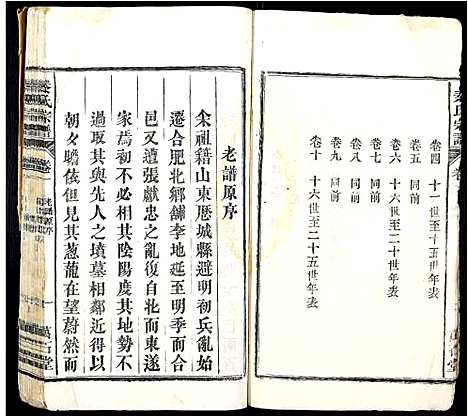 秦氏宗譜
卷四 十一世至十五世年表
卷五 同前
卷六 十六世至二十世年表
卷七 同前
卷八 同前
卷九 同前
卷十 十六世至二十五世年表
老譜原序
余祖籍山東歷城縣避明初兵亂始
遷合肥北鄉舖李地延至明季而合
邑又遭張獻忠之亂復自北而東遂
家焉初不必相其陰陽度其地勢不
過其與先人之墳墓相鄰近得以
朝夕瞻依但見其蔥蘢在望蔚然而
秦氏宗譜
老譜原序
萬古堂